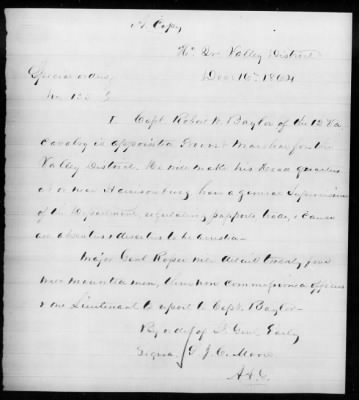 A Copy
Hd Qrs Valley District
Decr 16th 1864
Special orders,
No 135
I Capt. Robert W. Baylor of the 12 Va
Cavalry is appointed Provost Marshal for the
Valley District. He will make his Head quarters
at or near Harrisonburg, have a general supervision
of the Department, regulating passports, trade, & cause
all absentees & deserters to be arrested.
Major Genl Rosser will detail twenty four
well mounted men, three non commissioned officers
& one Lieutenant to report to Capt. Baylor.
By order of Lt Genl Early
Signed J. C. Moore
A A G